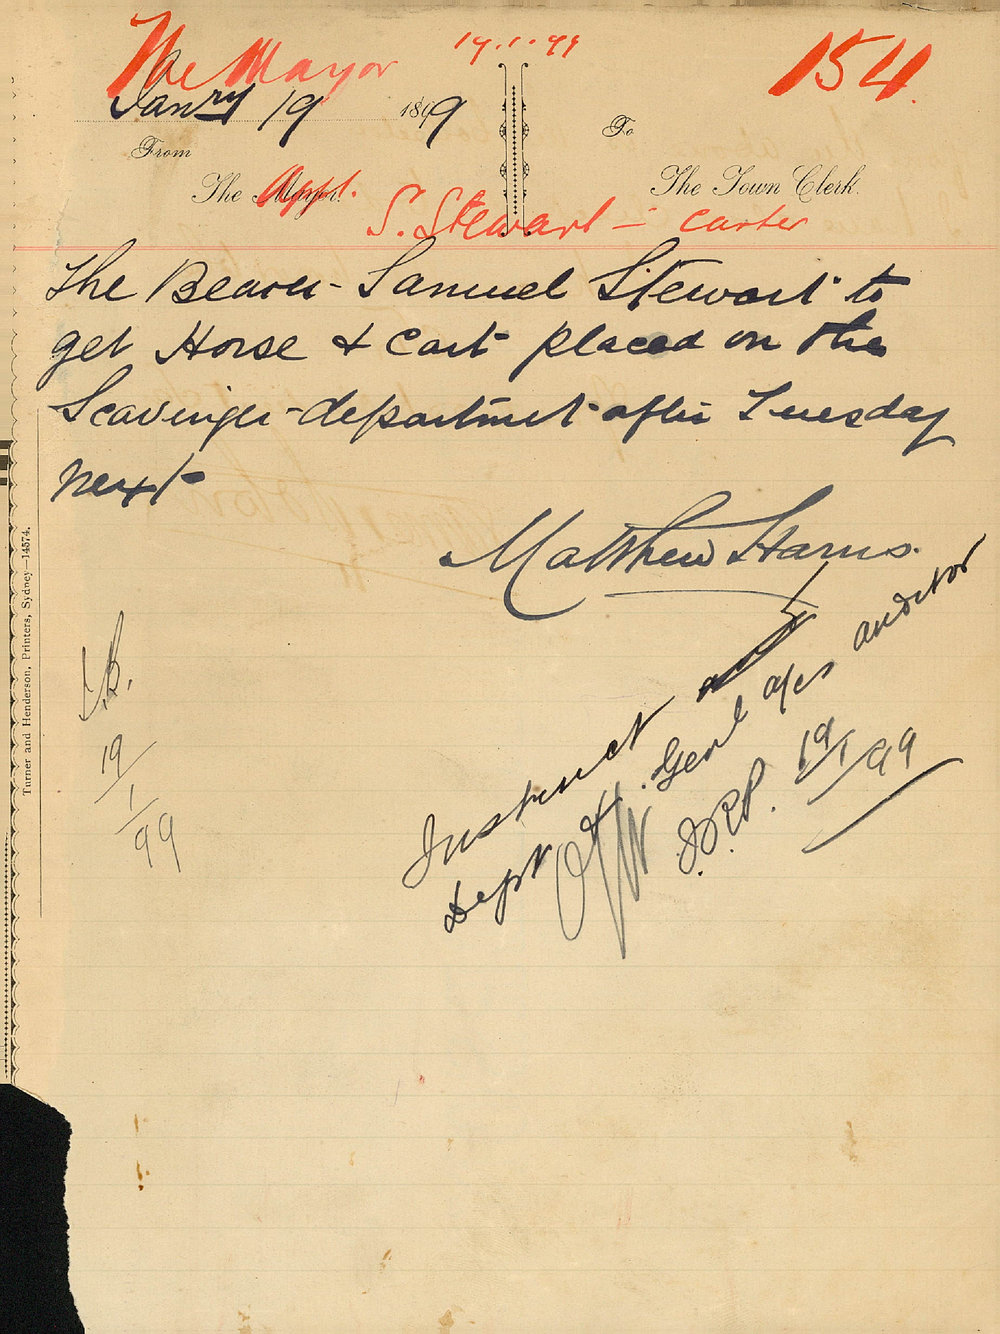 The Mayor 19.1.99 154.
Janry 19 1899
From To
The Mayor. The Town Clerk.
Appt.
S. Stewart - Carter
The Bearer - Samuel Stewart to
get Horse & Cart placed on the
Scavenger - department after Tuesday
next
Matthew Harris.
Instruct
Dept Genl a/cs auditor
19/1/99
19/1/99
Turner and Henderson, Printers, Sydney—14574.